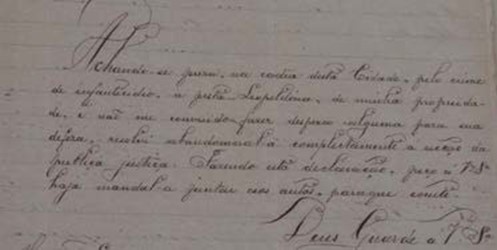 Achando-se preza, na cadea desta Cidade, pelo crime
de infanticidio, a preta Leopoldina, de minha proprieda-
de, e não me convindo fazer despeza alguma para sua
defeza, resolvi abandonal-a completamente a acção da
publica justiça. Fazendo esta declaração, peço a VSª
haja mandal-a juntar aos autos, paraque conste.
Deus Guarde a VSª